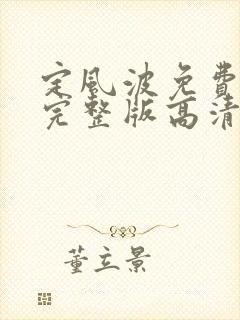 定风波免费
完整版高清
董立景